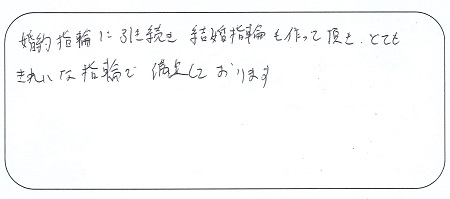 婚約指輪に引き続き 結婚指輪も作って頂き、とても
きれいな指輪で 満足しております